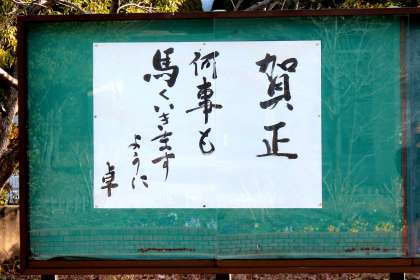 賀正
何事も
馬くいきます
ように
卓